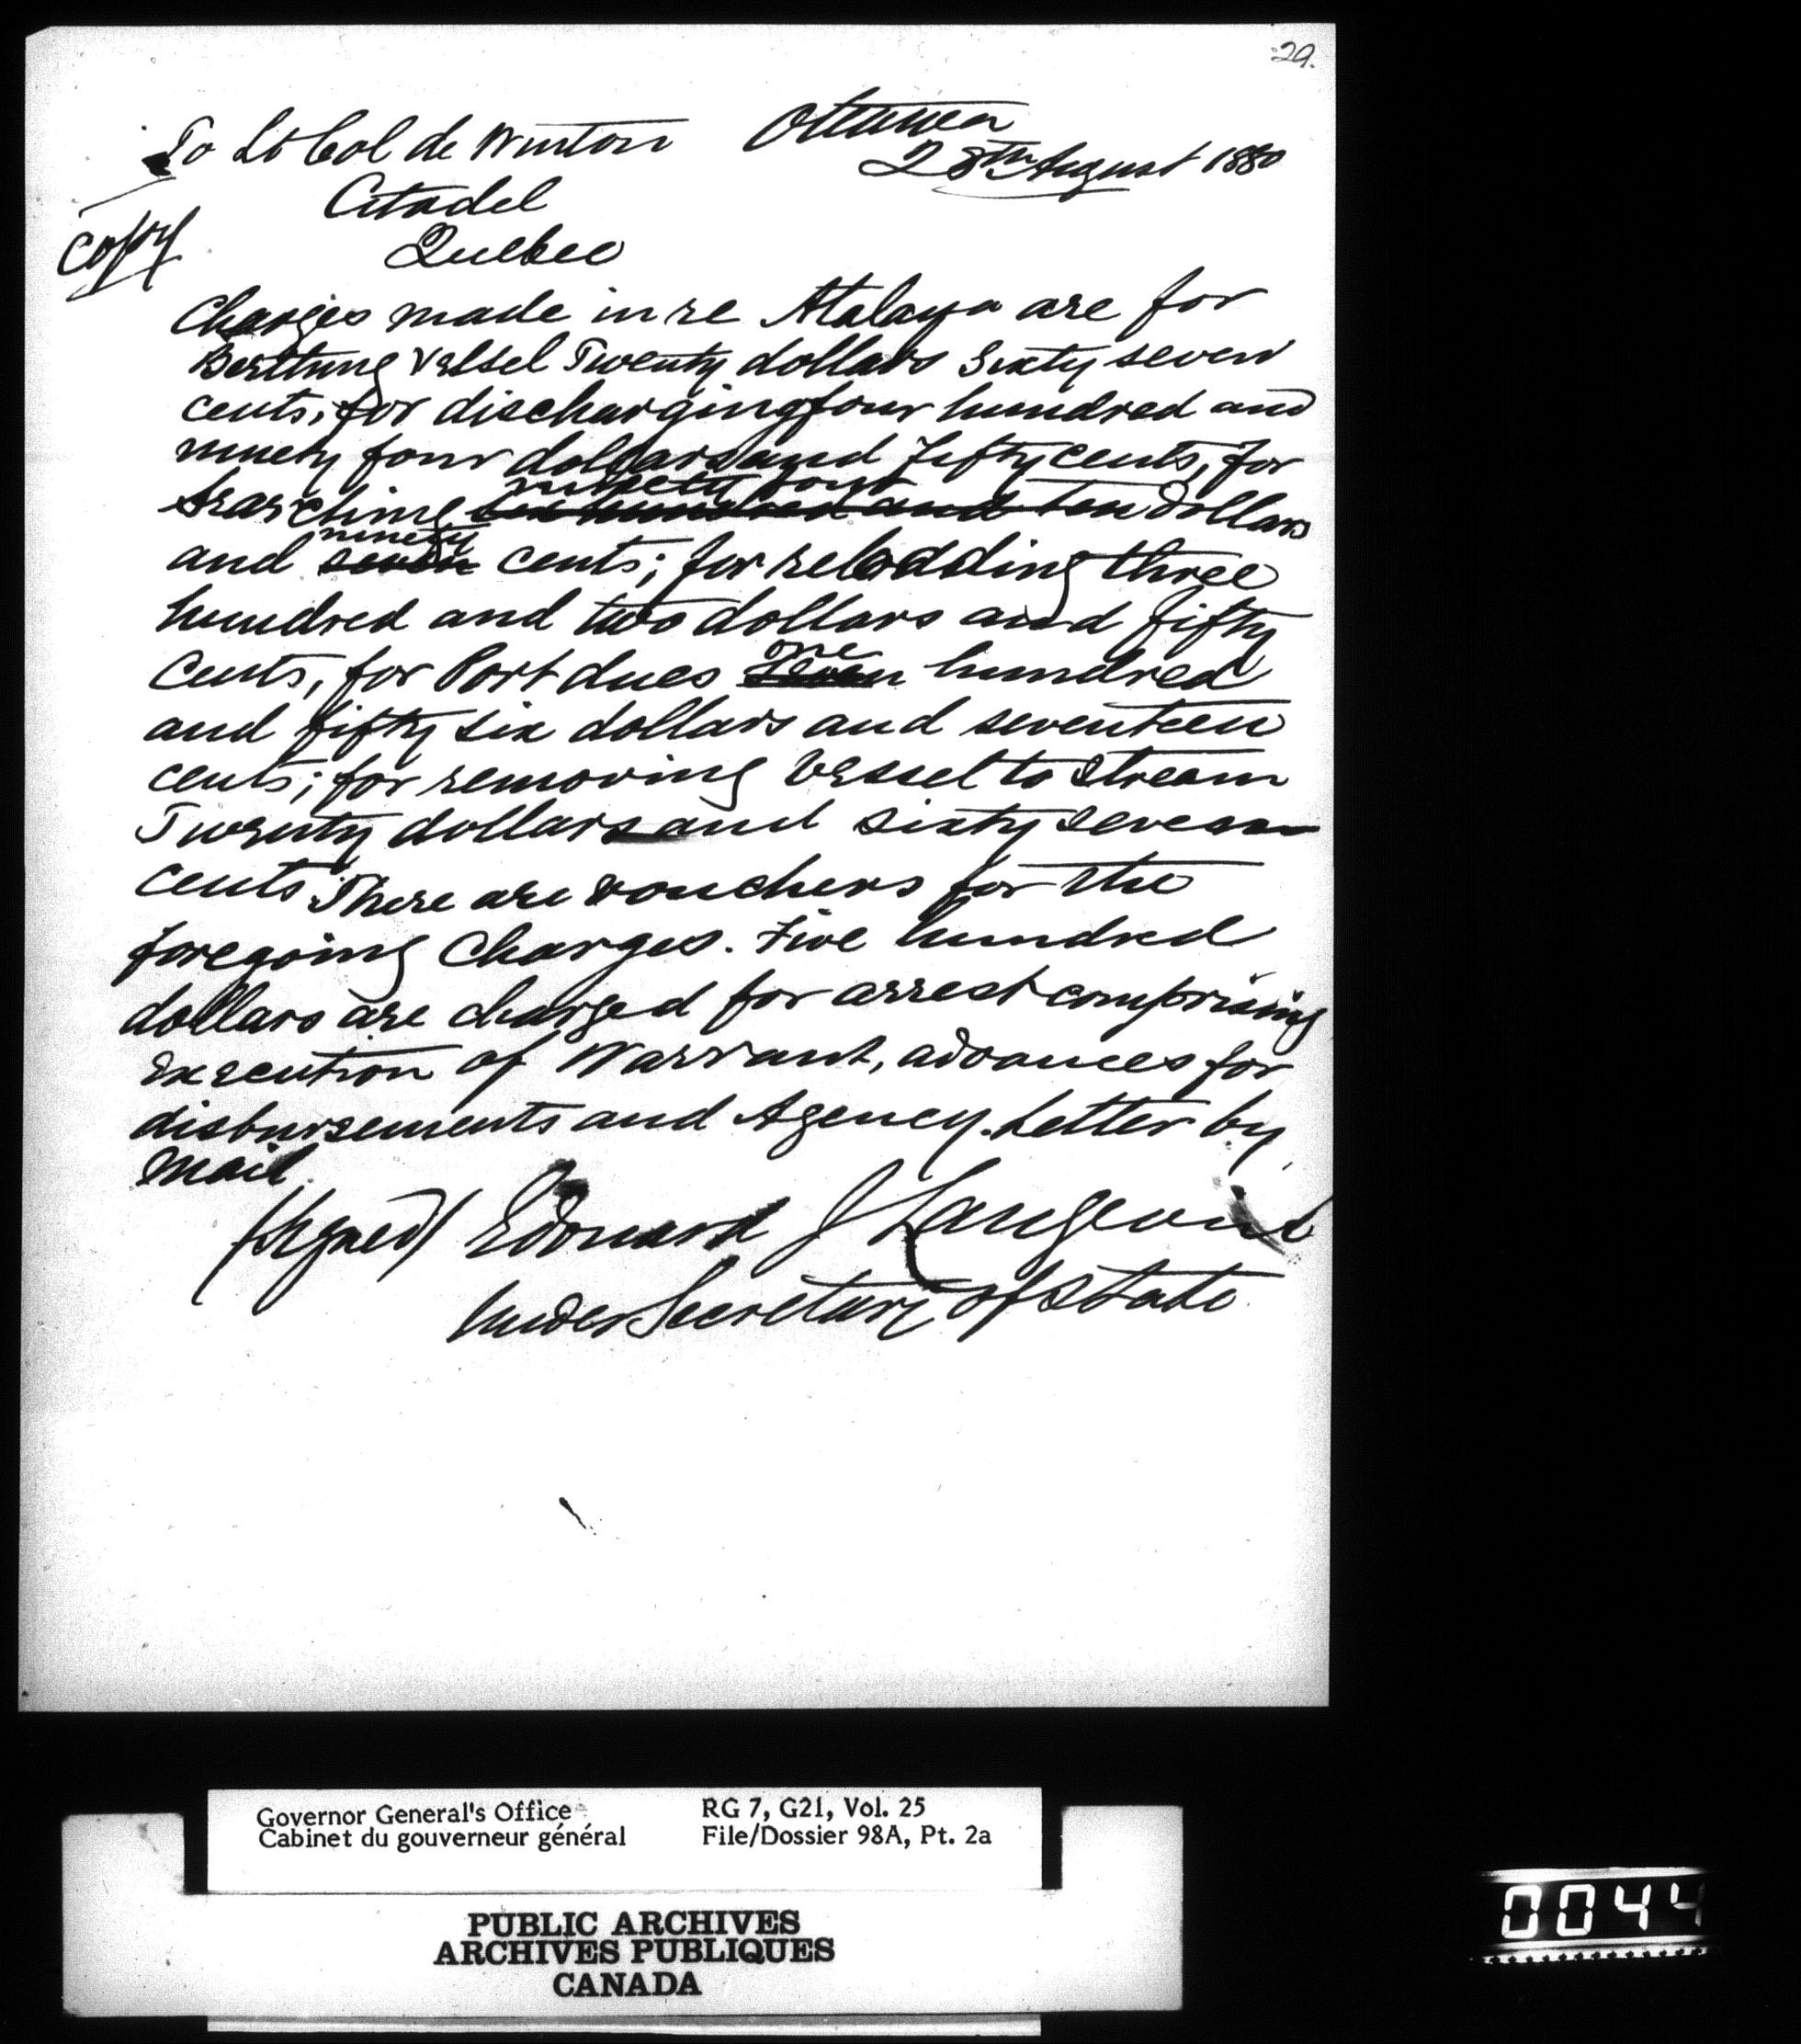 29.
To Lt Col de Winton Ottawa
28th August 1880
Citadel
Copy
Quebec
Charges made in re Atalaya are for
Berthing vessel Twenty dollars Sixty seven
cents, for discharging four hundred and
ninety four dollars and Fifty cents, for
ninety four
searching six hundred and ten dollars
ninety
and seven cents; for reloadding three
hundred and two dollars and fifty
one
cents, for Port dues seven hundred
and fifty six dollars and seventeen
cents; for removing Vessel to stream
Twenty dollars and sixty seven
cents. There are vouchers for the
foregoing charges. Five hundred
dollars are charged for arrest comprising
execution of Warrant, advances for
disbursements and Agency. Letter by
Mail.
(Signed) Edouard J Langevin
Under Secretary of State
Governor General's Office RG 7, G21, Vol. 25
Cabinet du gouverneur général File/Dossier 98A, Pt. 2a
PUBLIC ARCHIVES
ARCHIVES PUBLIQUES
CANADA
0044